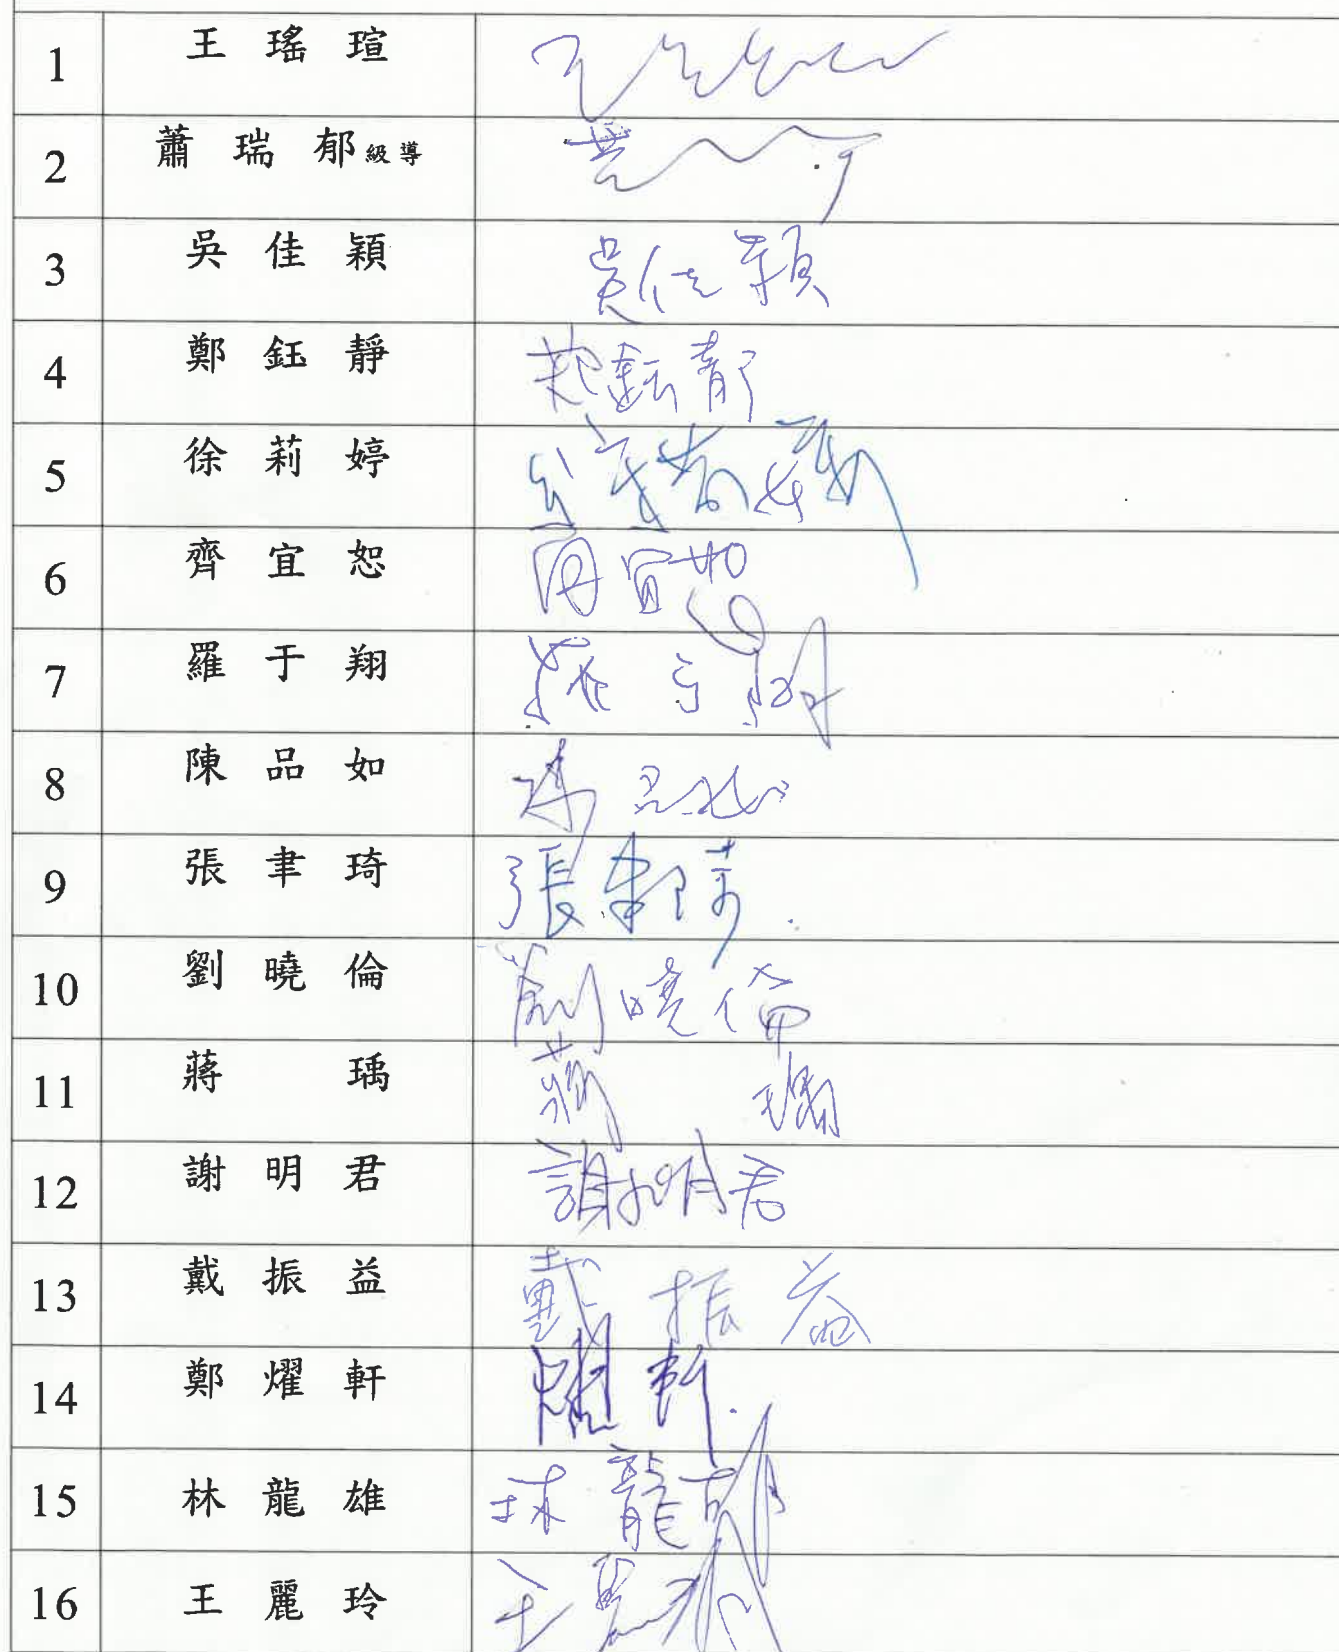 1 王瑤瑄
2 蕭瑞郁級導
3 吳佳穎 吳佳穎
4 鄭鈺靜
5 徐莉婷
6 齊宜恕
7 羅于翔
8 陳品如
9 張聿琦 張聿琦
10 劉曉倫 劉曉倫
11 蔣瑀 蔣瑀
12 謝明君 謝明君
13 戴振益 戴振益
14 鄭燿軒 燿軒
15 林龍雄 林龍雄
16 王麗玲